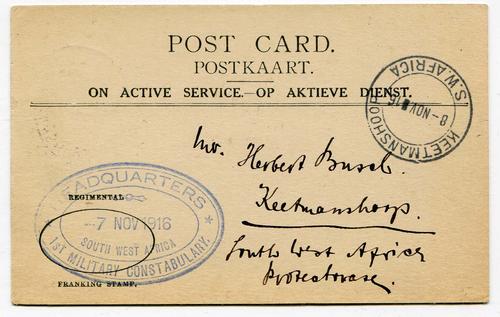 POST CARD.
POSTKAART.
ON ACTIVE SERVICE.—OP AKTIEVE DIENST.
KEETMANSHOOP
8-NOV 16
S.W. AFRICA
Herbert Busch.
Keetmanshoop.
South West Africa
Protectorate.
HEADQUARTERS
REGIMENTAL
-7 NOV 1916
SOUTH WEST AFRICA
1ST MILITARY CONSTABULARY.
FRANKING STAMP.